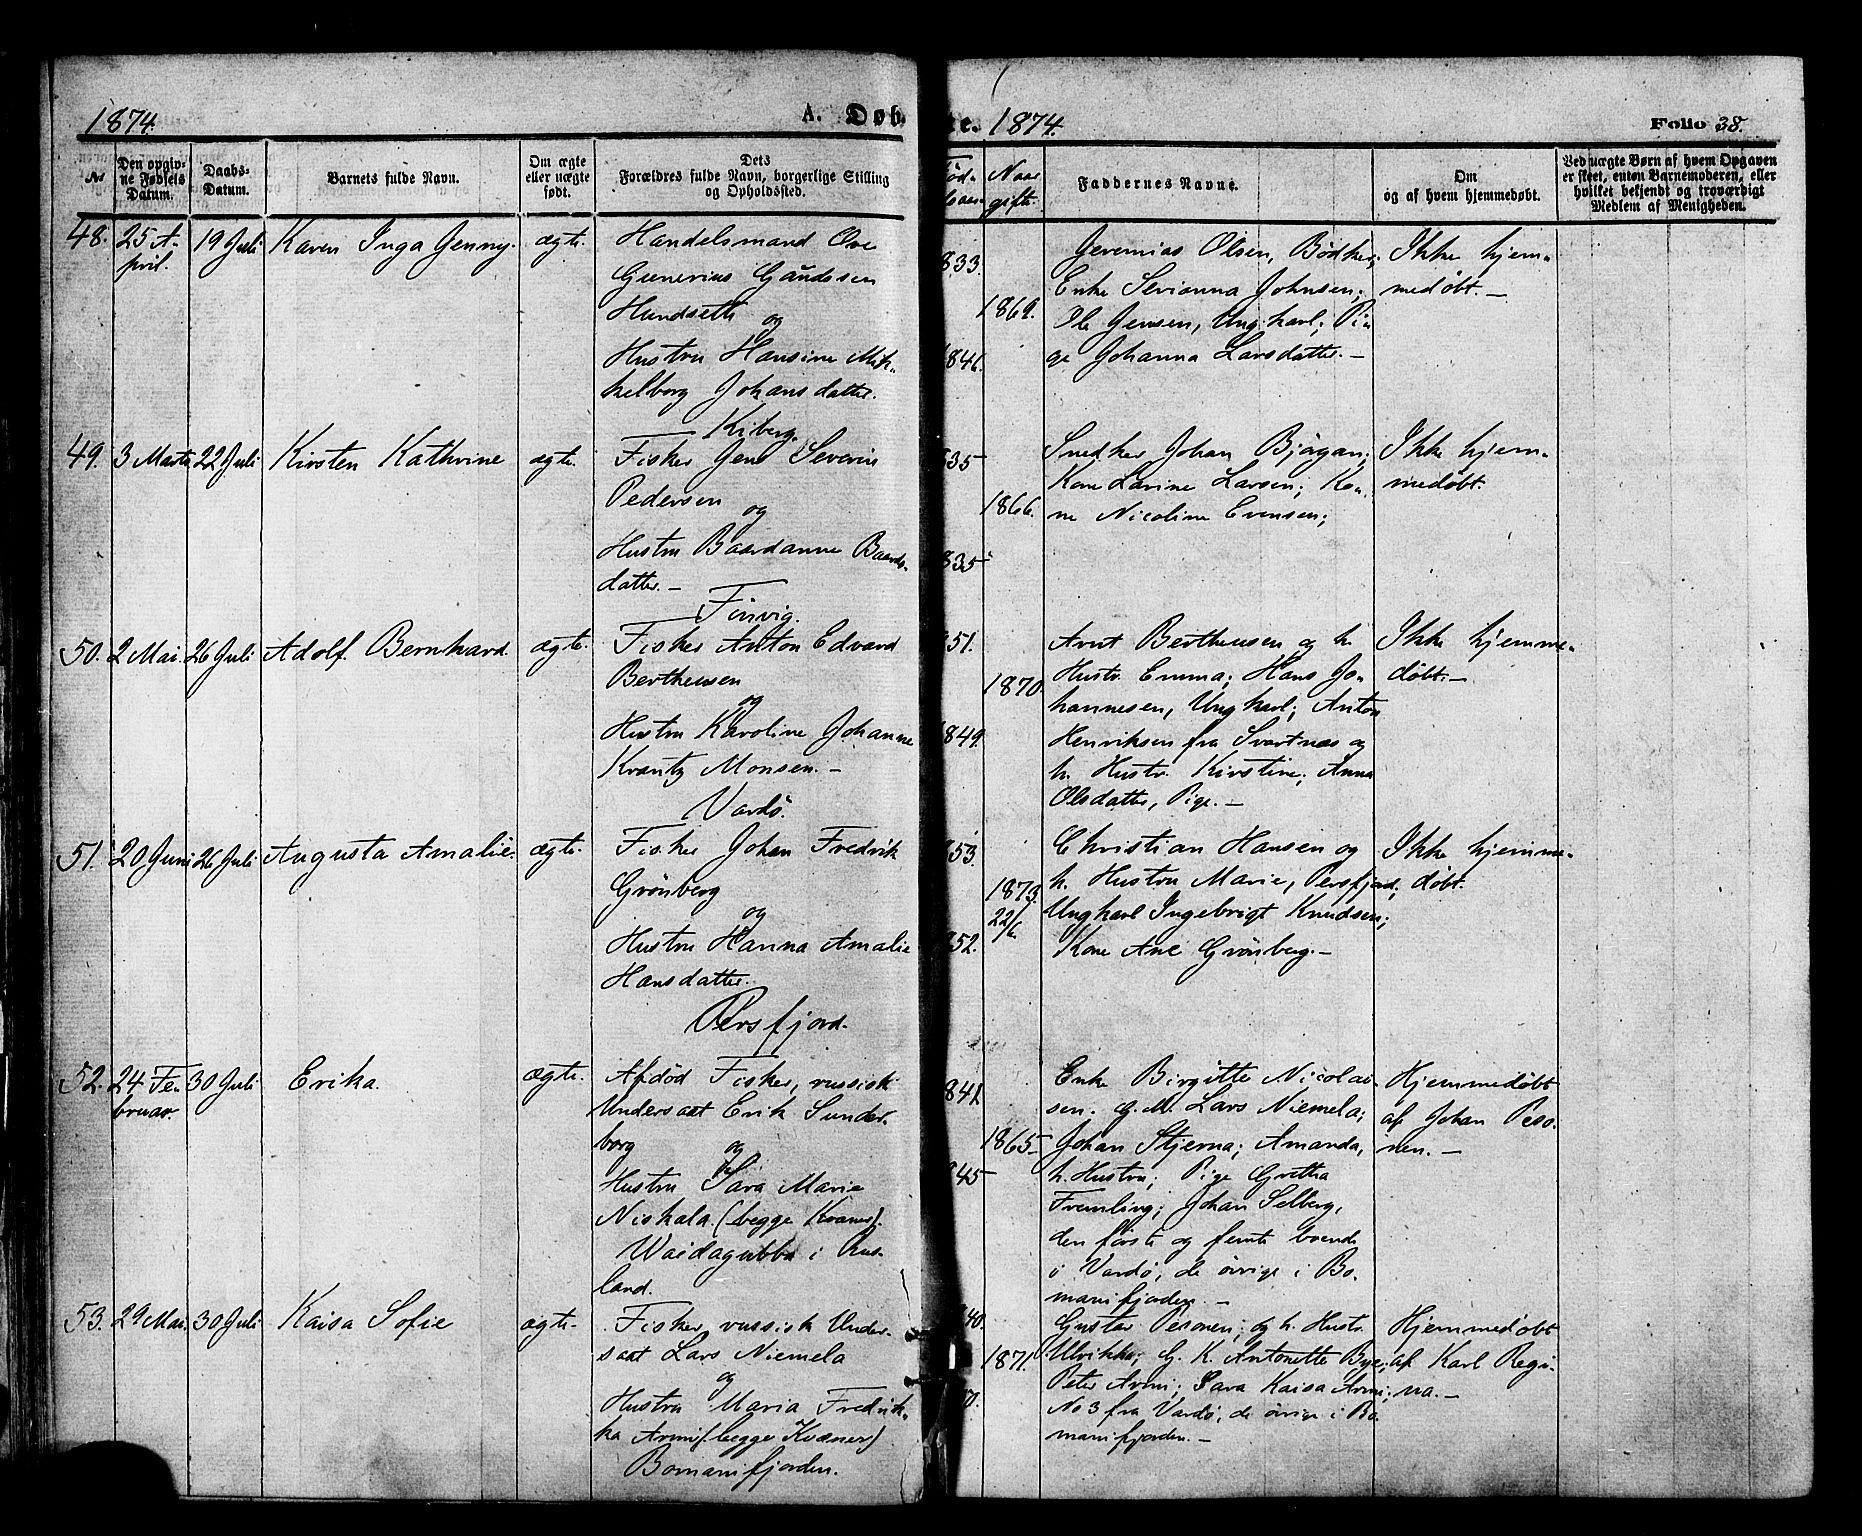 1874.
A. Døb-
te. 1874.
Folio 38.
No
Den opgiv-
ne Fødsels
Datum.
Daabs-
Datum.
Barnets fulde Navn.
Om ægte
eller uægte
født.
Dets
Forældres fulde Navn, borgerlige Stilling
og Opholdssted.
Naar
gifte.
Faddernes Navne.
Om
og af hvem hjemmedøbt.
Ved uægte Børn af hvem Opgaven
er skeet, enten Barnemoderen, eller
hvilket bekjendt og troværdigt
Medlem af Menigheden.
48. 25 A-
pril.
19 Juli
Karen Inga Jenny.
ægte.
Handelsmand Ove
Gunerius Gaudesen
Hundseth
og
Hustru Hansine Mik-
kelborg Johansdatter.
Kiberg.
833.
1869.
1846.
Jeremias Olsen, Bødker;
Enke Serianna Johnsen;
Ole Jensen, Ungkarl; Pi-
ge Johanna Larsdatter.—
Ikke hjem-
medøbt.—
49. 3 Marts 22 Juli
Kirsten Kathrine
ægte.
Fisker Jens Severin
Pedersen
og
Hustru Baardanne Baards-
datter.—
Finvig.
835
1866.
835
Snedker Johan Bjågan;
Kone Lavine Larsen; Ko-
ne Nicoline Evensen;
Ikke hjem-
medøbt.
50. 2 Mai. 26 Juli
Adolf Bernhard.
ægte.
Fisker Anton Edvard
Bertheusen
og
Hustru Karoline Johanne
Krantz Monsen.—
Vardö.
851.
1870.
849.
Arnt Bertheusen og h.
Hustr. Emma; Hans Jo-
hannesen, Ungkarl; Anton
Henriksen fra Svartnæs og
h. Hustr. Kirstine; Anna
Olsdatter, Pige.—
Ikke hjemme-
døbt.—
51. 20 Juni 26 Juli
Augusta Amalie.
ægte.
Fisker Johan Fredrik
Grönberg
og
Hustru Hanna Amalie
Hansdatter.
Persfjord.
853.
1873.
22/6.
852.
Christian Hansen og
h. Hustru Marie, Persfjord;
Ungkarl Ingebrigt Knudsen;
Kone Ane Grönberg.—
Ikke hjemme-
døbt.
52. 24 Fe-
bruar.
30 Juli
Erika.
ægte.
Afdød Fisker, russisk
Undersaat Erik Sunder-
borg
og
Hustru Sara Marie
Niskala (begge Kvæner).
Waidagubba i Rus-
land.
841.
1865
845
Enke Birgitte Nicolai-
sen. G. M. Lars Niemela;
Johan Stjerna; Amanda,
h. Hustru; Pige Gretha
Fremling; Johan Selberg,
den første og femte boende
i Vardö, de øvrige i Bo-
manifjorden.—
Hjemmedøbt
af Johan Peso-
nen.—
53. 29 Mai. 30 Juli
Kaisa Sofie
ægte.
Fisker, russisk Under-
saat Lars Niemela
og
Hustru Maria Fredrik-
ka Armi (begge Kvæner)
Bomanifjorden.
840.
1871.
Gustav Pesonen; og h. Hustr.
Ulrikka; G. K. Antonette Bye;
Peter Armi; Sara Kaisa Armi;
No 3 fra Vardö, de øvrige i Bo-
manifjorden.—
Hjemmedøbt
af Karl Regi-
na.—